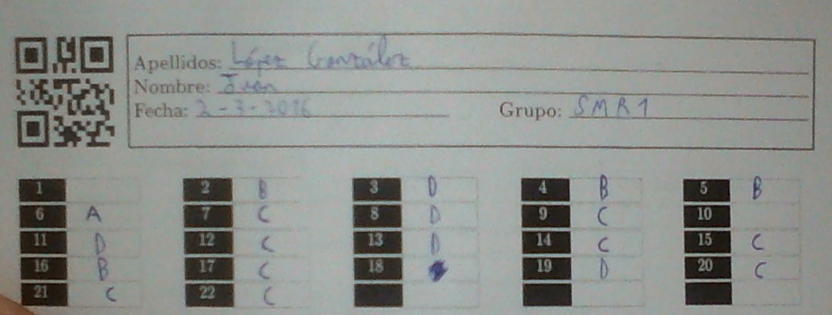 Apellidos: López González
Nombre: Juan
Fecha: 2-3-2016 Grupo: SMR1
1 2 B 3 D 4 B 5 B
6 A 7 C 8 D 9 C 10
11 D 12 C 13 D 14 C 15 C
16 B 17 C 18 19 D 20 C
21 C 22 C